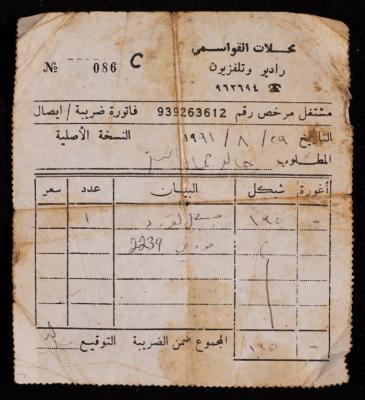 محلات القواسمي
راديو وتلفزيون
☎ ٩٦٢٦٩٤
№ 086 C
مشتغل مرخص رقم 939263612 فاتورة ضريبة / ايصال
التاريخ ٢٩ / ٨ / ١٩٩١ النسخة الأصلية
المطلوب خالد
أغورة شيكل البيان عدد سعر
- ١٩٥ مسجل ١
2239
- ١٩٥ المجموع ضمن الضريبة التوقيع